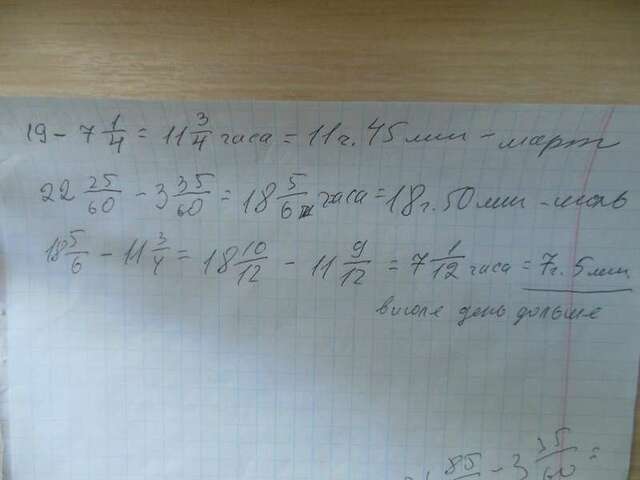 19 - 7 1/4 = 11 3/4 часа = 11 г. 45 мин - март
22 25/60 - 3 35/60 = 18 5/6 часа = 18 г. 50 мин - июль
18 5/6 - 11 3/4 = 18 10/12 - 11 9/12 = 7 1/12 часа = 7 г. 5 мин
в июле день дольше
85 - 3 35/60 =